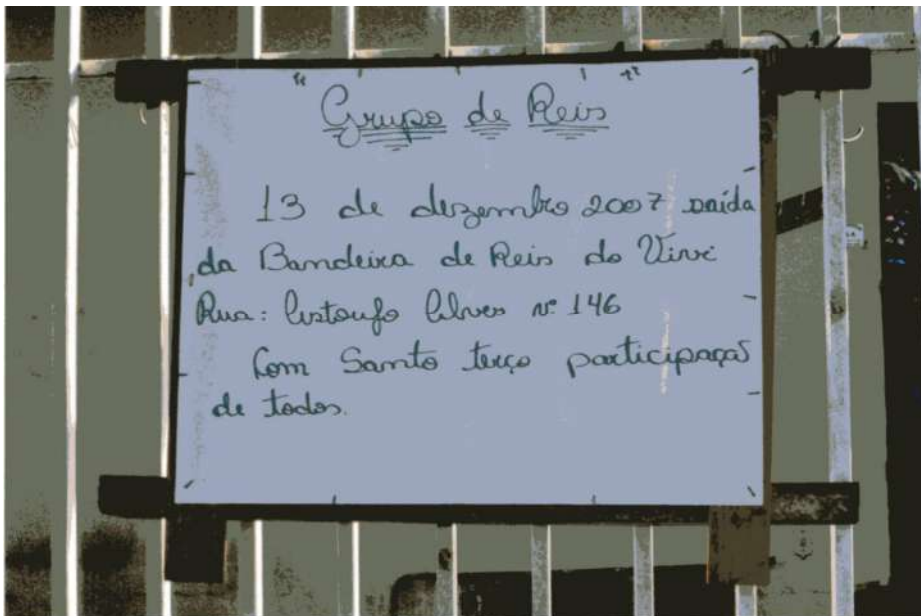 Grupo de Reis
13 de dezembro 2007 saída
da Bandeira de Reis do Vivi
Rua: Cristoufo Alves nº 146
Com Santo terço participaças
de todos.